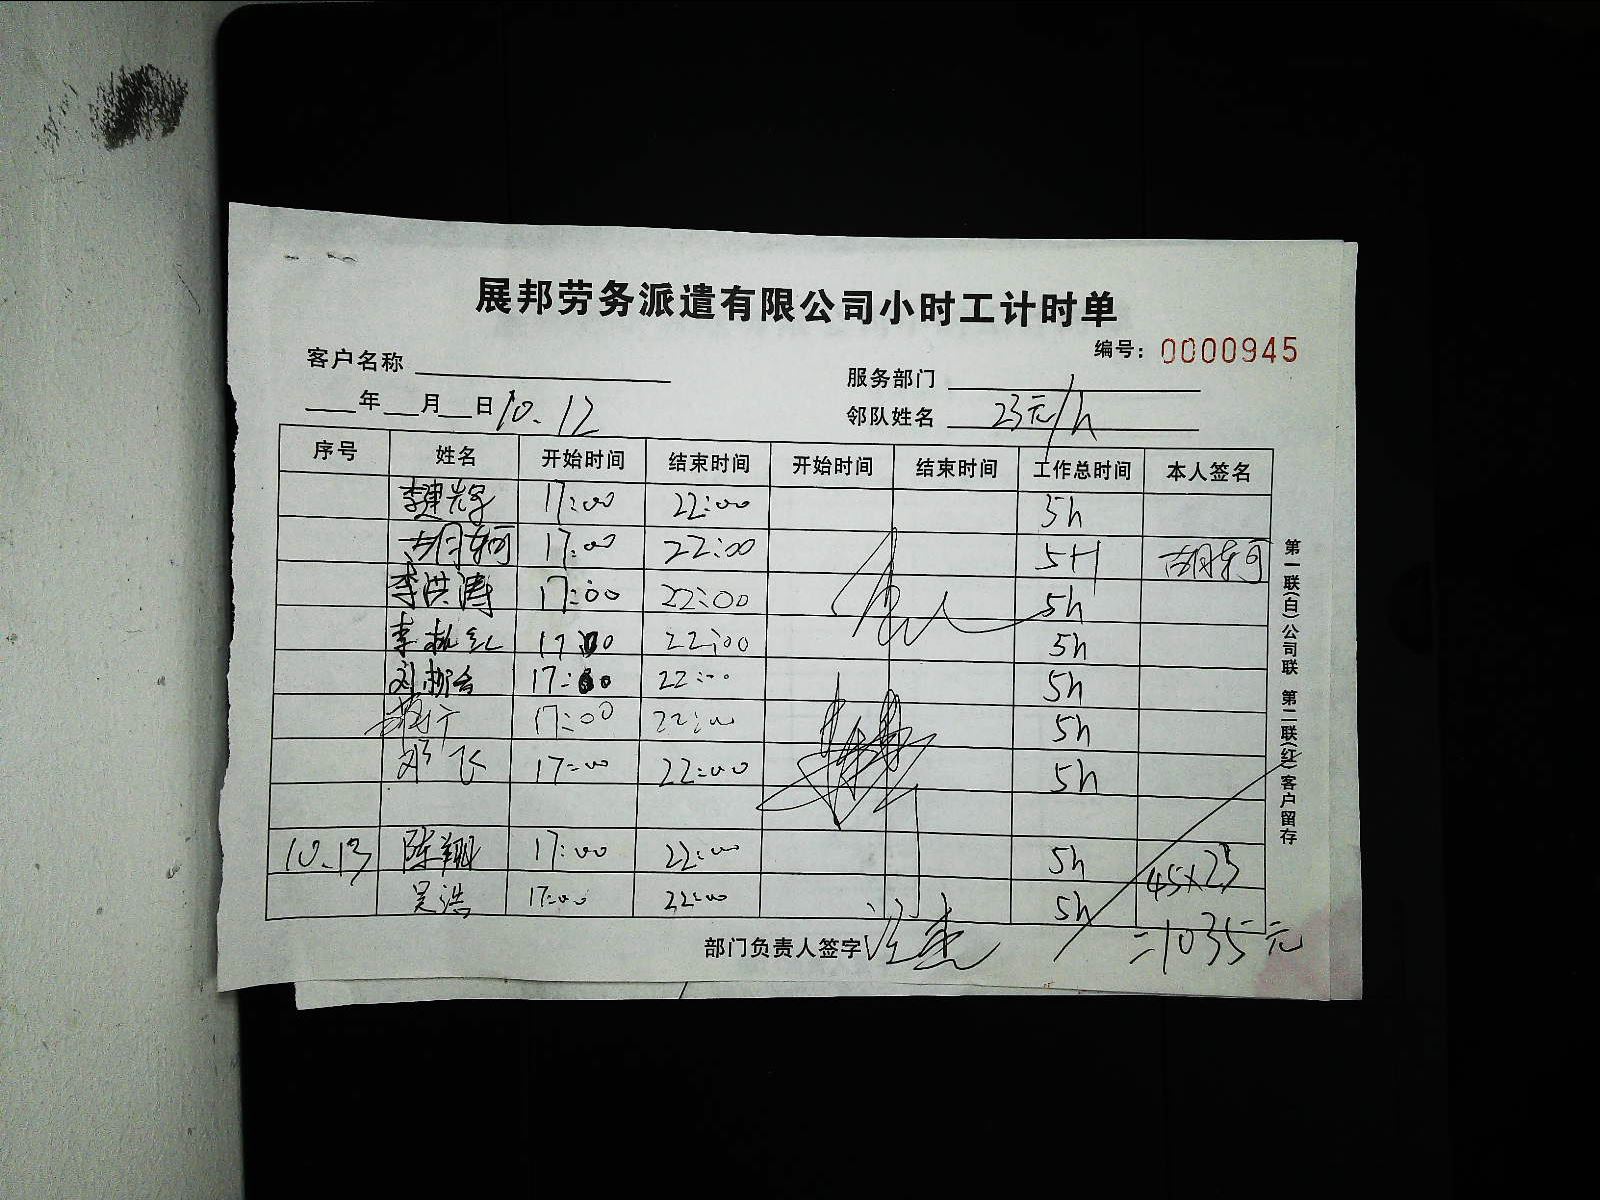 展邦劳务派遣有限公司小时工计时单
编号：0000945
客户名称 服务部门
年 月 日 10.12 邻队姓名 23元/h
序号 姓名 开始时间 结束时间 开始时间 结束时间 工作总时间 本人签名
17:00 22:00 5h
胡东河 17:00 22:00 5H 胡东河
李洪涛 17:00 22:00 5h
李 红 17:00 22:00 5h
刘 17:00 22:00 5h
17:00 22:00 5h
邓飞 17:00 22:00 5h
10.13 陈翔 17:00 22:00 5h 45×23
吴浩 17:00 22:00 5h
=1035元
部门负责人签字
第一联(白)公司联 第二联(红)客户留存